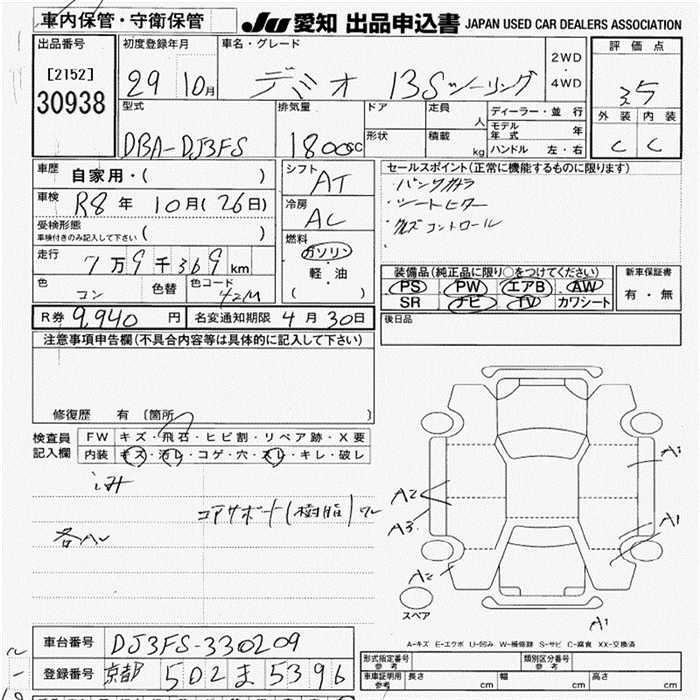 車内保管・守衛保管
JU 愛知 出品申込書 JAPAN USED CAR DEALERS ASSOCIATION
出品番号 初度登録年月 車名・グレード 2WD ・ 4WD 評価点
[2152] 29年 10月 デミオ 13Sツーリング 3.5
30938
型式 排気量 ドア 定員 人 ディーラー・並行 外装 内装
DBA-DJ3FS 1800cc 形状 積載 kg モデル年式 年 C C
ハンドル 左・右
車歴 自家用・( ) シフト AT セールスポイント(正常に機能するものに限ります)
車検 R8年 10月(26日) 冷房 AC ・バックカメラ
・シートヒーター
受検形態 車検付きのみ記入して下さい ( ) 燃料 ・クルーズコントロール
走行 7万9千369km ガソリン
・
軽・油
( )
装備品(純正品に限り○をつけてください) 新車保証書
色 コン 色替 色コード 42M PS PW エアB AW 有・無
SR ナビ TV カワシート
R券 9,940円 名変通知期限 4月30日 後日品
注意事項申告欄(不具合内容等は具体的に記入して下さい)
修復歴 有〔箇所 〕
検査員記入欄 FW キズ・飛石・ヒビ割・リペア跡・X要
内装 キズ・汚レ・コゲ・穴・スレ・キレ・破レ
シミ
コアサポート(樹脂)ワレ
A1
A2
A3
A1
A2
A1
スペア
A-キズ E-エクボ U-凹み W-補修跡 S-サビ C-腐食 XX-交換済
車台番号 DJ3FS-330209
登録番号 京都 502 ま 5396
形式指定番号 参考 類別区分番号 参考
車庫証明用 参考 長さ cm 幅 cm 高さ cm